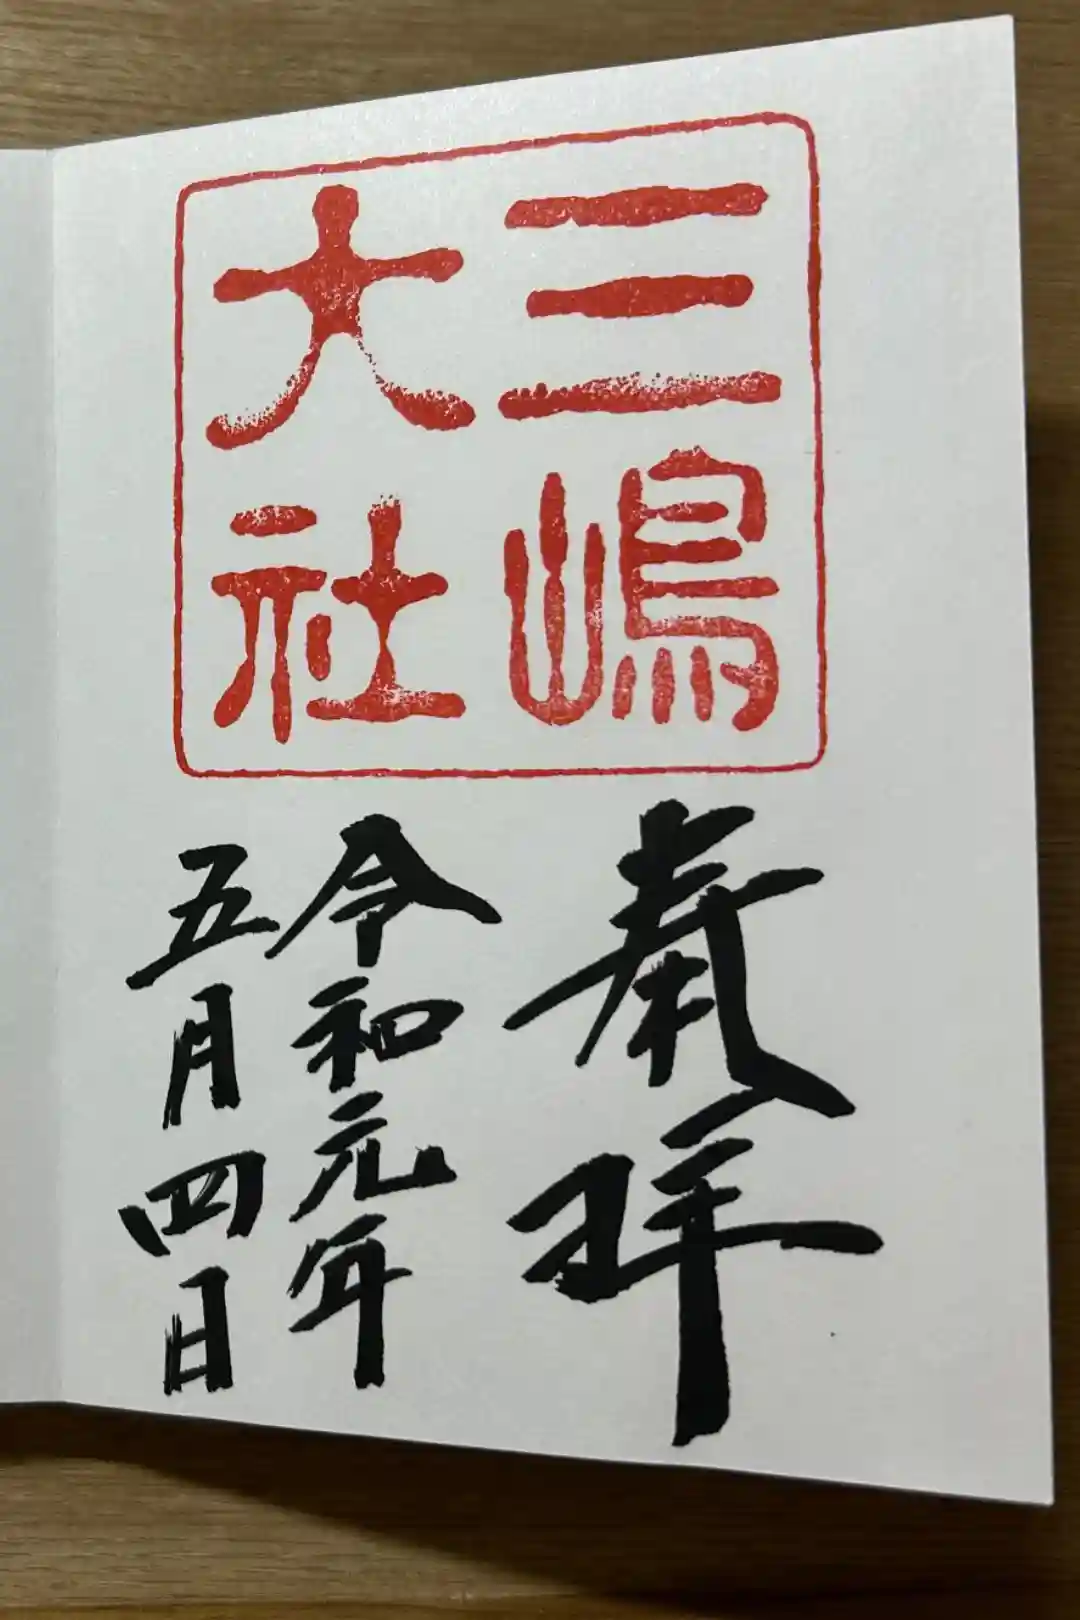 三嶋
大社
奉拝
令和元年
五月四日